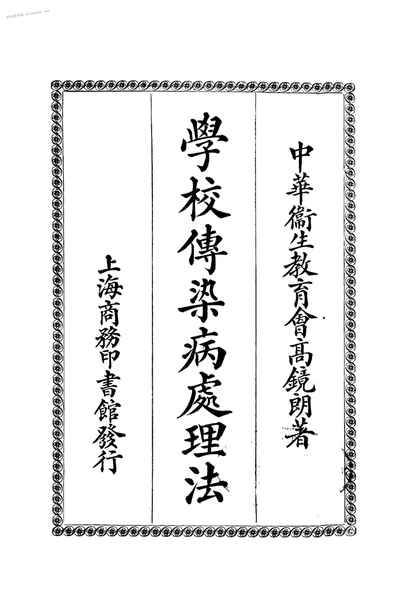 中華衞生教育會高鏡朗著
學校傳染病處理法
上海商務印書館發行